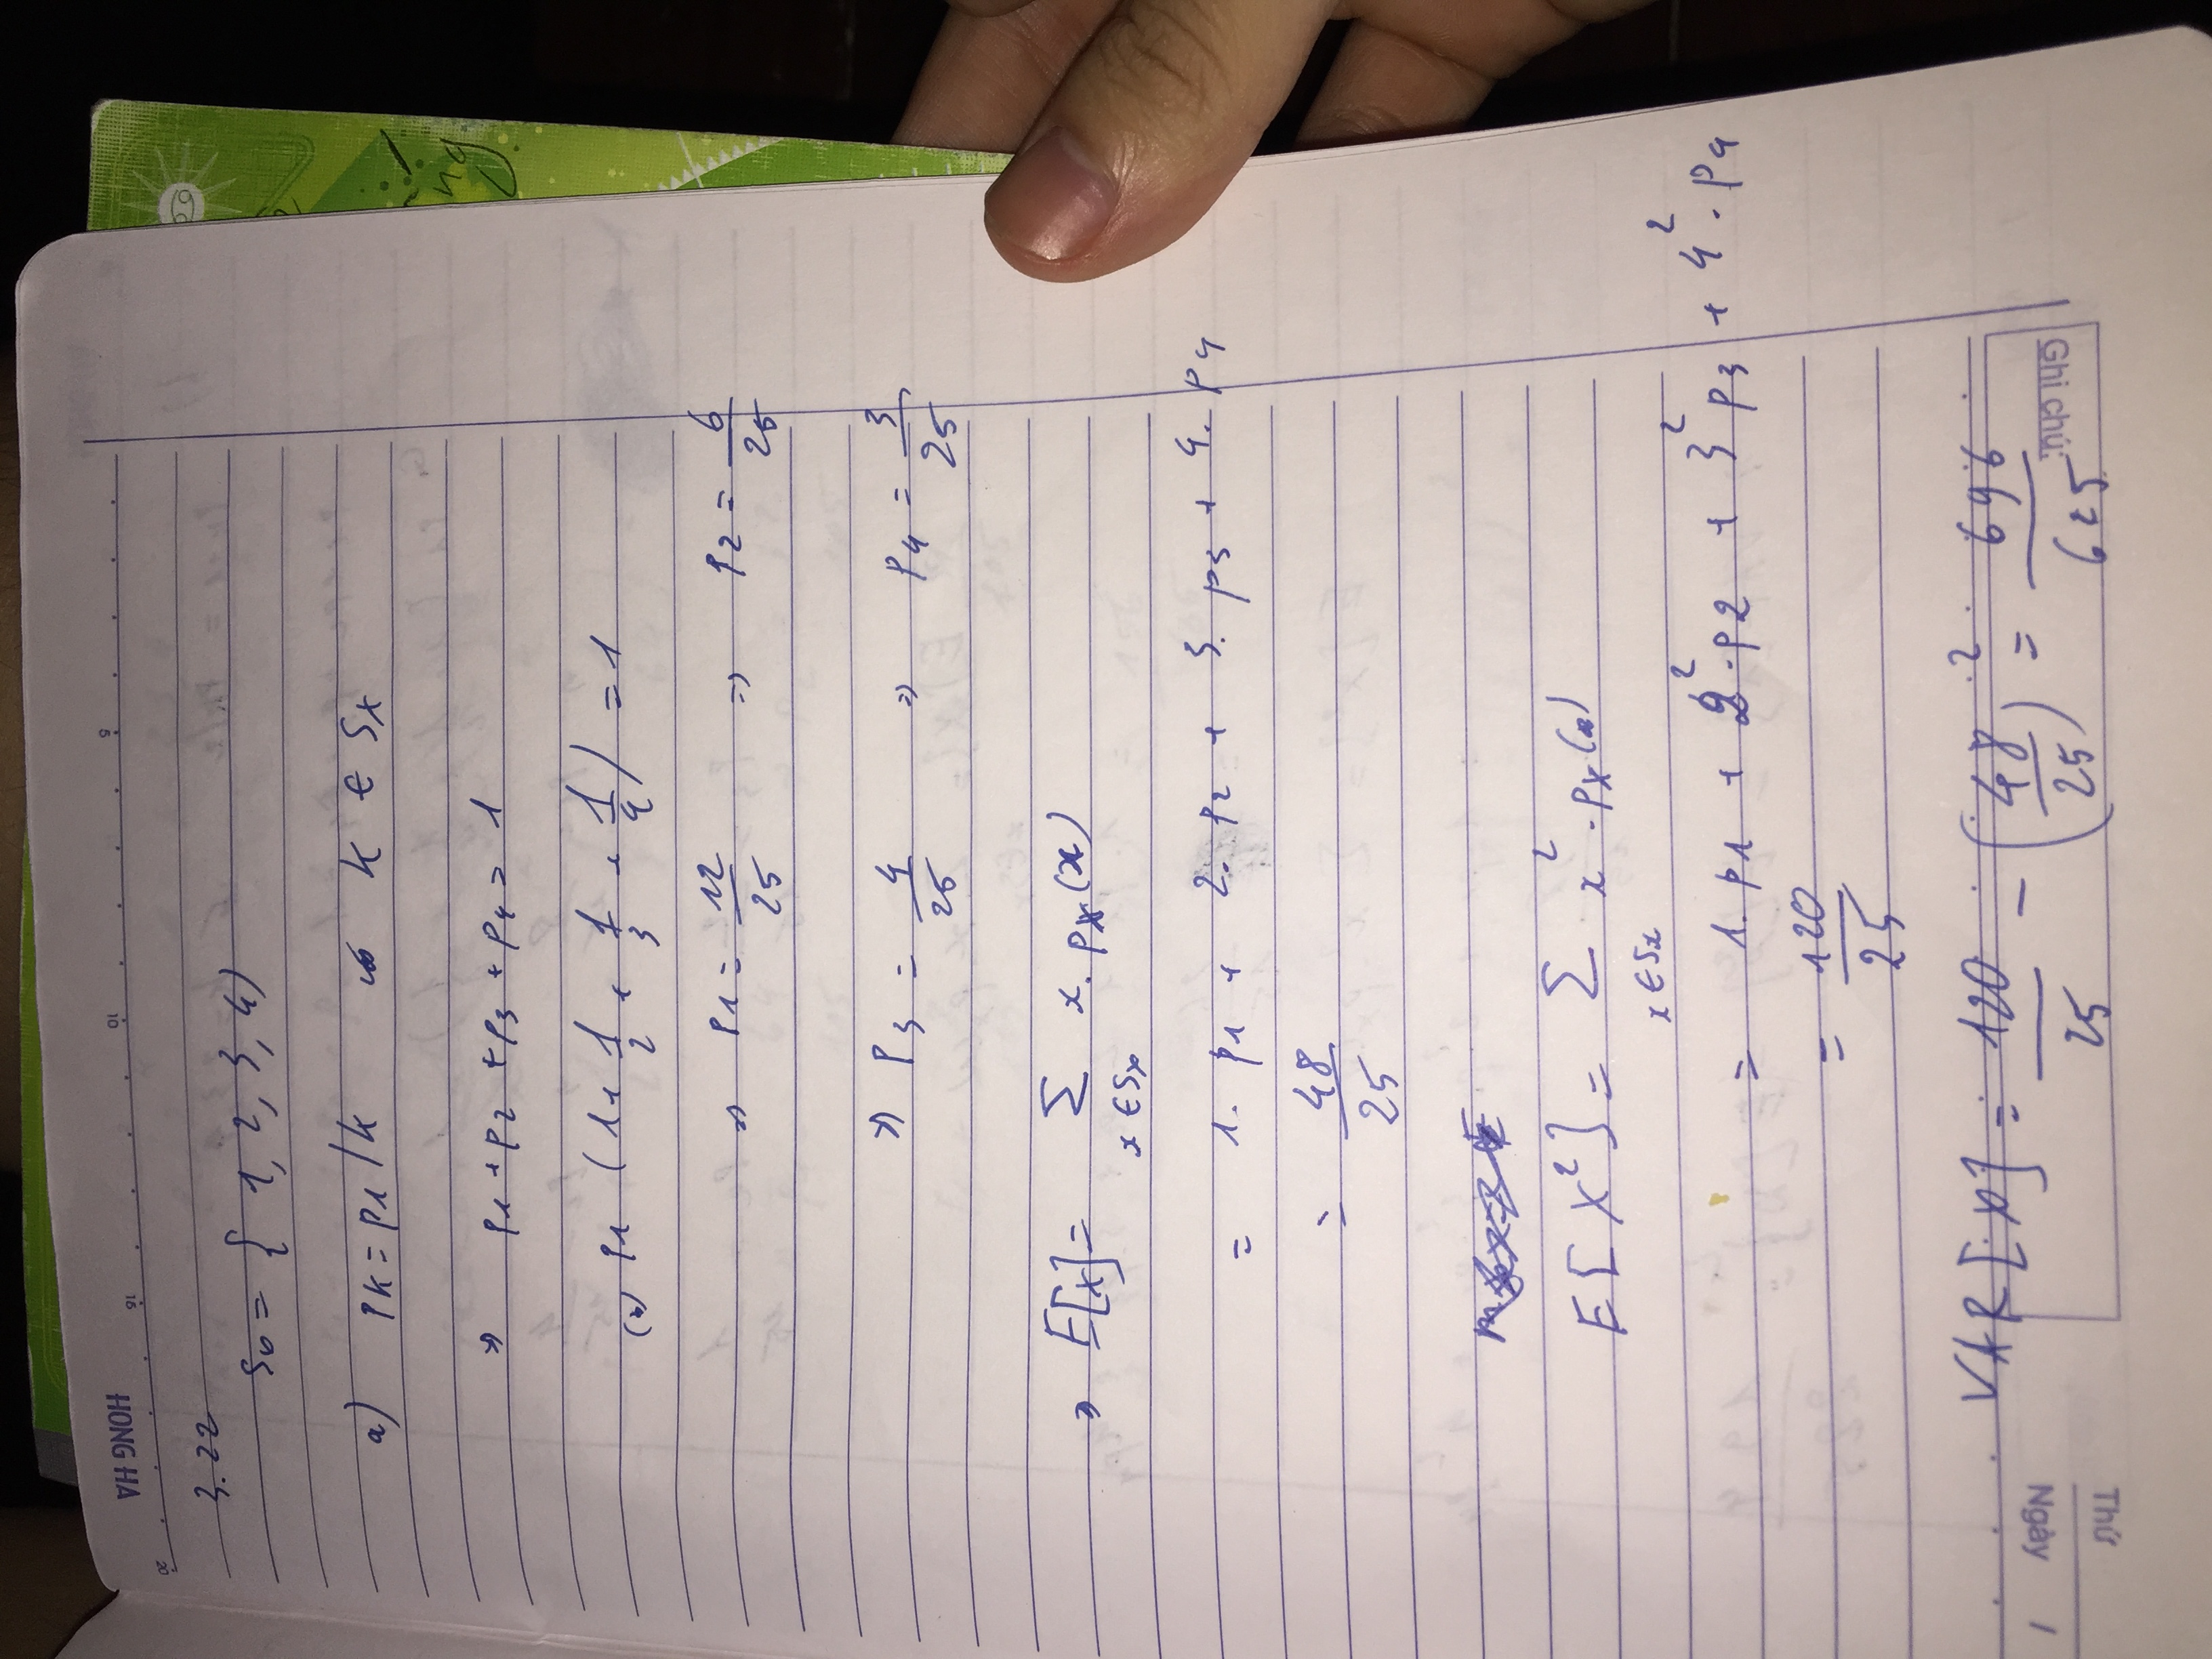 HONG HA
20 15 10 5
3.22
S₀ = { 1, 2, 3, 4)
a) pk = p1 / k k ∈ Sx
=> p1 + p2 + p3 + p4 = 1
p1 ( 1 + 1/2 + 1/3 + 1/4 ) = 1
=> p1 = 12/25 => p2 = 6/25
=> p3 = 4/25 => p4 = 3/25
=> E[x] = Σ x . px (x)
x ∈ Sx
= 1. p1 + 2. p2 + 3. p3 + 4. p4
= 48/25
E[X²] = Σ x² . px (x)
x ∈ Sx
= 1. p1 + 2² . p2 + 3² p3 + 4² . p4
= 120/25
VAR[X] = 120/25 - (48/25)² = 696/625
Ghi chú:
Ngày /
Thứ
ng